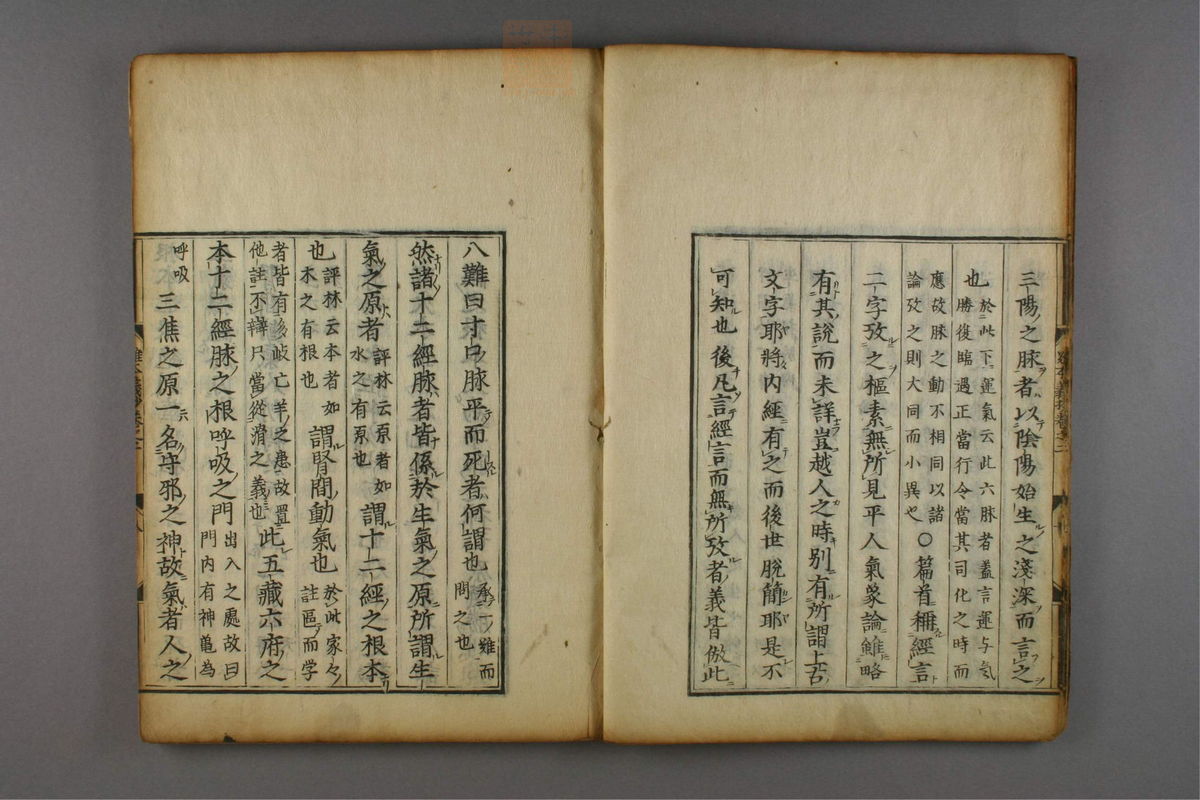 三陽之脉者以陰陽始生之淺深而言之
也 於此下運氣云此六脉者蓋言運与氣
勝復臨遇正當行令當其司化之時而
應故脉之動不相同以諸
論攷之則大同而小異也 〇篇首稱經言
二字攷之樞素無所見平人氣象論雖略
有其說而未詳豈越人之時別有所謂上古
文字耶將內經有之而後世脫簡耶是不
可知也 後凡言經言而無所攷者義皆倣此
八難曰寸口脉平而死者何謂也 承一難而
問之也
然諸十二經脉者皆係於生氣之原所謂生
氣之原者 評林云原者如
水之有原也 謂十二經之根本
也 評林云本者如
木之有根也 謂腎間動氣也 於此家々
註區而学
者皆有多岐亡羊之患故置
他註不辨只當從滑之義也 此五藏六府之
本十二經脉之根呼吸之門 出入之處故曰
門內有神龜為
呼吸 三焦之原一名守邪之神故氣者人之